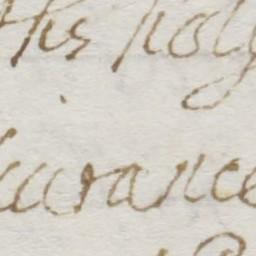 his holy
urance